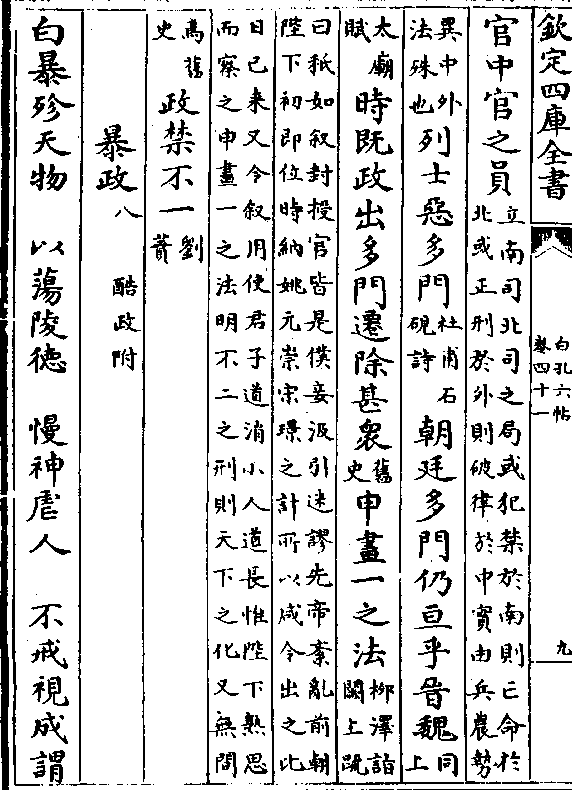 欽定四庫全書
白孔六帖
卷四十一
九
官中官之員
立南司北司之局或犯禁於南則亡命於
北或正刑於外則破律於中實由兵農勢
異中外
法殊也
列士惡多門
杜甫石
硯詩
朝廷多門仍亘乎晉魏
同
上
太廟
賦
時既政出多門遷除甚衆
舊
史
申畫一之法
柳澤詣
闕上䟽
曰秖如叙封授官皆是僕妾汲引迷謬先帝紊亂前朝
陛下初即位時納姚元崇宋璟之計所以咸令出之比
日已来又令叙用使君子道消小人道長惟陛下熟思
而察之申畫一之法明不二之刑則天下之化又無間
焉舊
史
政禁不一
劉
蕡
暴政 八 酷政附
白暴殄天物 以蕩陵德 慢神虐人 不戒視成謂